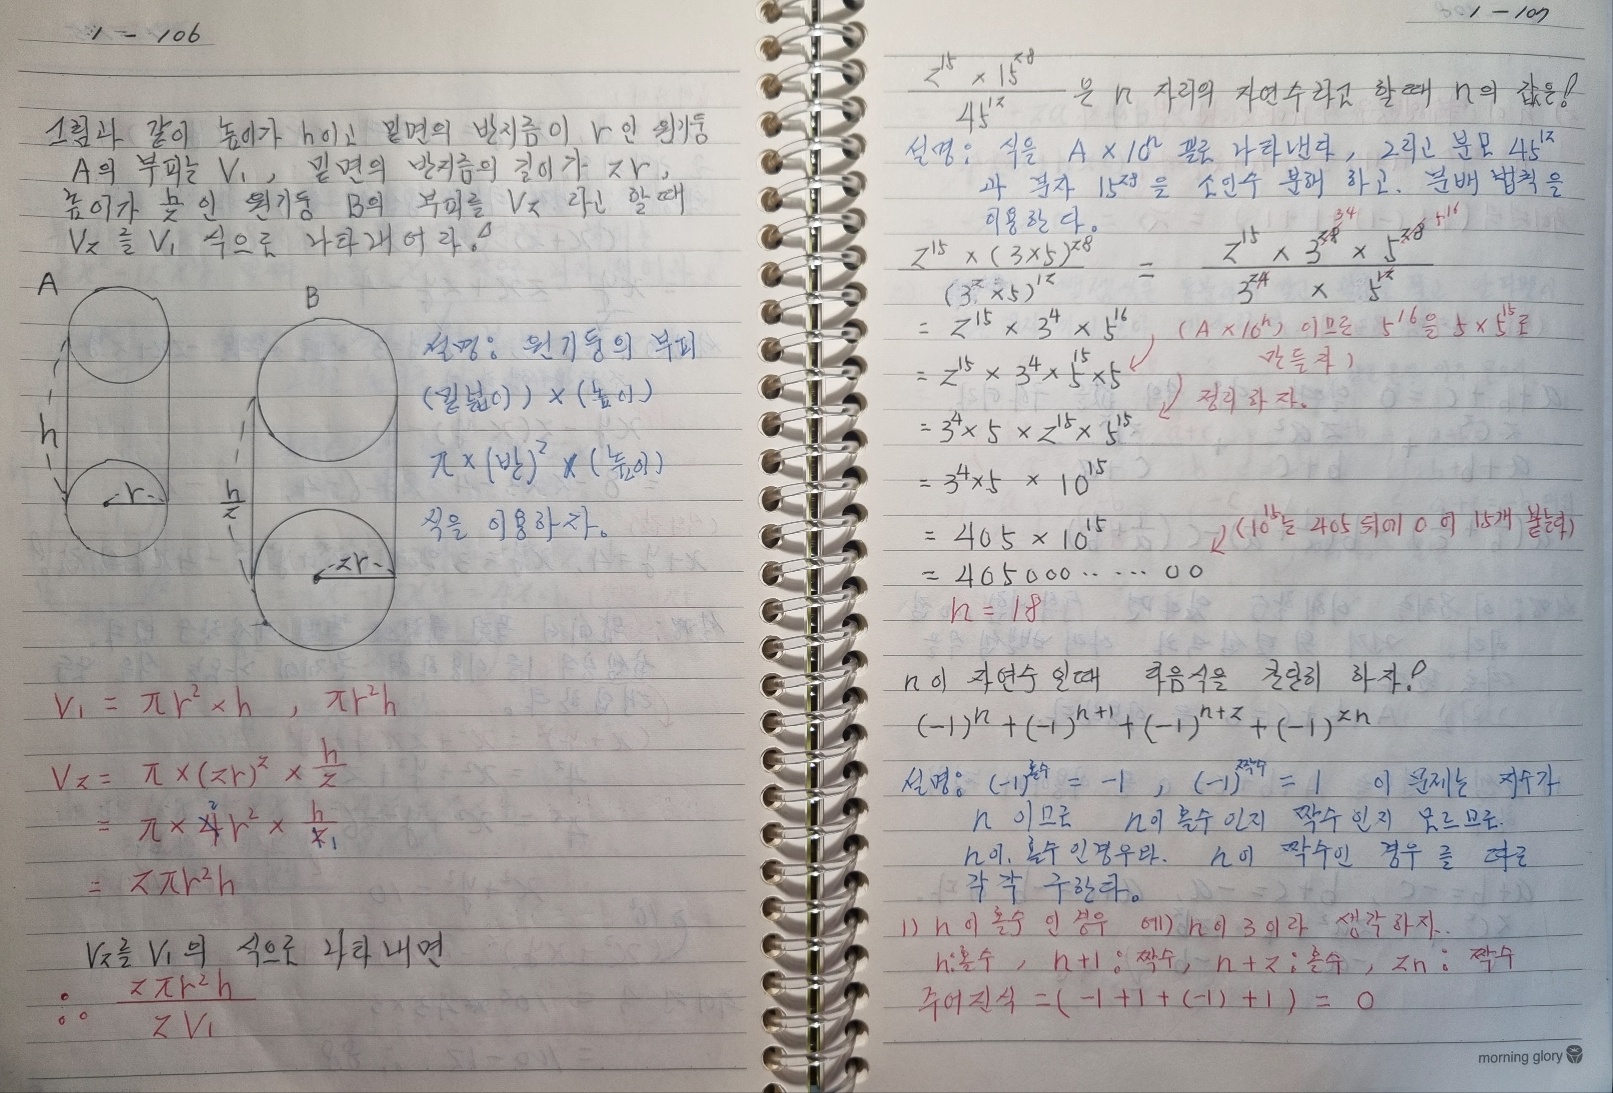 1 - 106
그림과 같이 높이가 h이고 밑면의 반지름이 r인 원기둥
A의 부피는 V₁, 밑면의 반지름의 길이가 2r,
높이가 h/2인 원기둥 B의 부피를 V₂라고 할때
V₂를 V₁ 식으로 나타내어라!
A
B
h
r
h/2
2r
설명: 원기둥의 부피
(밑넓이) × (높이)
π × (반)² × (높이)
식을 이용하자.
V₁ = πr² × h , πr²h
V₂ = π × (2r)² × h/2
= π × 4r² × h/2
= 2πr²h
V₂를 V₁의 식으로 나타내면
∴ 2πr²h / 2V₁
1 - 107
2¹⁵ × 15²⁸ / 45¹² 은 n 자리의 자연수라고 할때 n의 값은!
설명: 식을 A × 10ⁿ 꼴로 나타낸다, 그리고 분모 45¹²
과 분자 15²⁸을 소인수 분해 하고. 분배 법칙을
이용한다.
2¹⁵ × (3×5)²⁸ / (3² × 5)¹² = 2¹⁵ × 3²⁸ × 5²⁸ / 3²⁴ × 5¹²
= 2¹⁵ × 3⁴ × 5¹⁶
(A × 10ⁿ) 이므로 5¹⁶을 5 × 5¹⁵로
만들자)
= 2¹⁵ × 3⁴ × 5¹⁵ × 5
정리하자.
= 3⁴ × 5 × 2¹⁵ × 5¹⁵
= 3⁴ × 5 × 10¹⁵
= 405 × 10¹⁵
(10¹⁵는 405 뒤에 0이 15개 붙는다)
= 405000·· ····00
n = 18
n이 자연수 일때 다음식을 간단히 하자!
(-1)ⁿ + (-1)ⁿ⁺¹ + (-1)ⁿ⁺² + (-1)²ⁿ
설명: (-1)^홀수 = -1 , (-1)^짝수 = 1 이 문제는 지수가
n 이므로 n이 홀수인지 짝수인지 모르므로.
n이. 홀수인경우와. n이 짝수인 경우를 따로
각각 구한다.
1) n이 홀수 인 경우 예) n이 3이라 생각하자..
n:홀수 , n+1 : 짝수, n+2 : 홀수 , 2n : 짝수
주어진식 = (-1+1+(-1)+1) = 0
morning glory